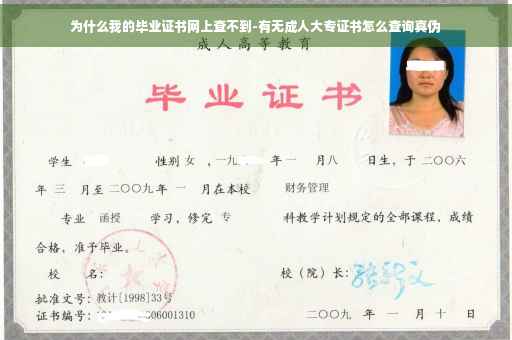 为什么我的毕业证书网上查不到-有无成人大专证书怎么查询真伪
成人高等教育
毕业证书
学生 性别 女 ，一九 年 一 月八 日生，于 二〇〇六
年 三 月至 二〇〇九 年 一 月在本校 财务管理
专业 函授 学习，修完 专 科教学计划规定的全部课程，成绩
合格，准予毕业。
校 名： 校（院）长：
批准文号：教计[1998]33号
证书编号： 06001310 二〇〇九 年 一 月 十 日